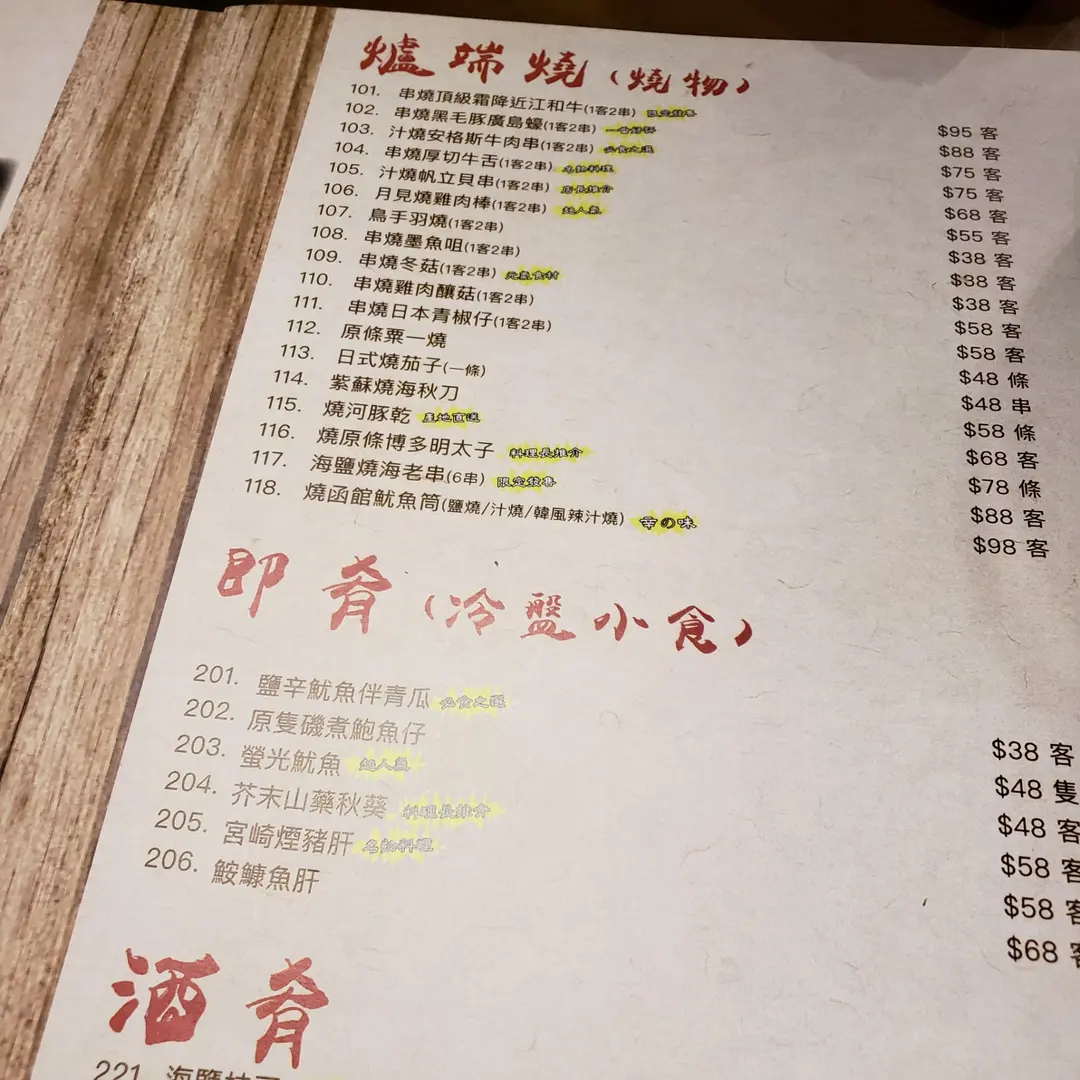 爐端燒(燒物)
101. 串燒頂級霜降近江和牛(1客2串) 限定發售 $95 客
102. 串燒黑毛豚廣島蠔(1客2串) $88 客
103. 汁燒安格斯牛肉串(1客2串) 必食之選 $75 客
104. 串燒厚切牛舌(1客2串) 名物料理 $75 客
105. 汁燒帆立貝串(1客2串) 店長推介 $68 客
106. 月見燒雞肉棒(1客2串) 超人氣 $55 客
107. 鳥手羽燒(1客2串) $38 客
108. 串燒墨魚咀(1客2串) $38 客
109. 串燒冬菇(1客2串) 元氣食材 $38 客
110. 串燒雞肉釀菇(1客2串) $58 客
111. 串燒日本青椒仔(1客2串) $58 客
112. 原條粟一燒 $48 條
113. 日式燒茄子(一條) $48 串
114. 紫蘇燒海秋刀 $58 條
115. 燒河豚乾 產地直送 $68 客
116. 燒原條博多明太子 料理長推介 $78 條
117. 海鹽燒海老串(6串) 限定發售 $88 客
118. 燒函館魷魚筒(鹽燒/汁燒/韓風辣汁燒) 幸の味 $98 客
即肴(冷盤小食)
201. 鹽辛魷魚伴青瓜 必食之選 $38 客
202. 原隻磯煮鮑魚仔 $48 隻
203. 螢光魷魚 超人氣 $48 客
204. 芥末山藥秋葵 料理長推介 $58 客
205. 宮崎煙豬肝 名物料理 $58 客
206. 鮟鱇魚肝 $68 客
酒肴
221. 海鹽枝豆